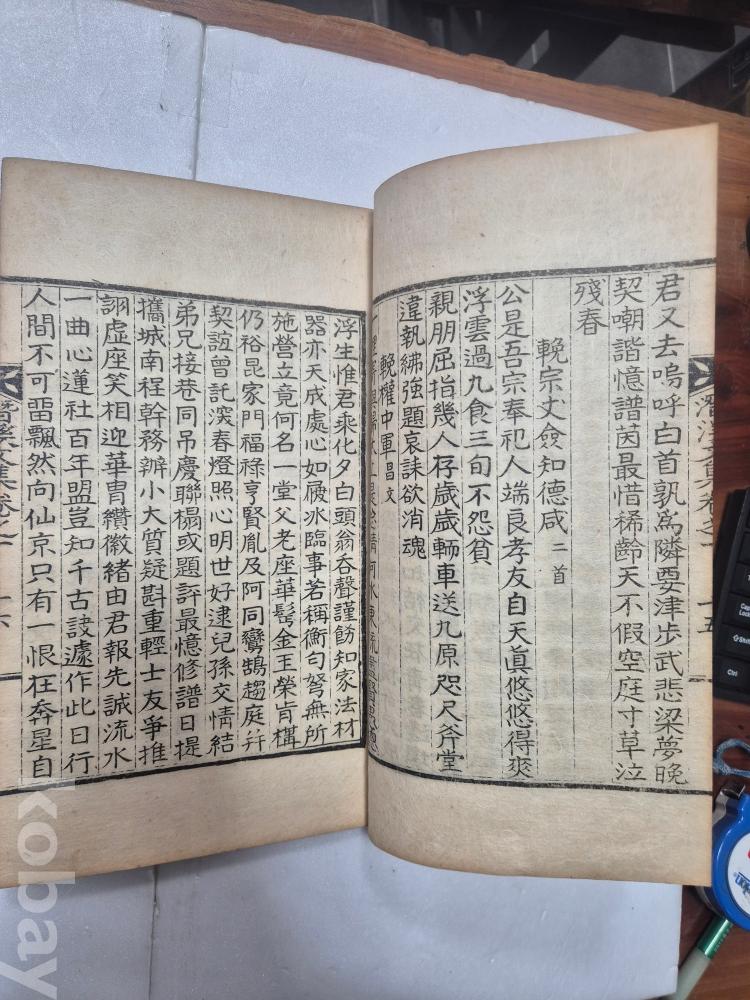 君又去嗚呼白首孰爲隣要津步武悲梁夢晚
契嘲諧憶譜茵最惜稀齡天不假空庭寸草泣
殘春
輓宗丈僉知德咸 二首
公是吾宗奉祀人端良孝友自天眞悠悠得喪
浮雲過九食三旬不怨貧
親朋屈指幾人存歲歲輀車送九原咫尺斧堂
違執紼強題哀誄欲消魂
輓權中軍 昌文
潛溪文集卷之一 十五
浮生惟君乘化夕白頭翁吞聲謹飭知家法材
器亦天成處心如履冰臨事若稱衡勻弩無所
施營立竟何名一堂父老座華髩金玉榮肯構
仍裕昆家門福祿亨賢胤及阿同鸞鵠趨庭幷
契誼曾託深春燈照心明世好逮兒孫交情結
弟兄接巷同吊慶聯榻或題評最憶修譜日提
攜城南程幹務辨小大質疑斟重輕士友爭推
詡虛座笑相迎華胄纘徽緒由君報先誠流水
一曲心蓮社百年盟豈知千古訣遽作此日行
人間不可留飄然向仙京只有一恨在奔星自
潛溪文集卷之一 十六
kobay
Caps Lock
Shift
Ctrl